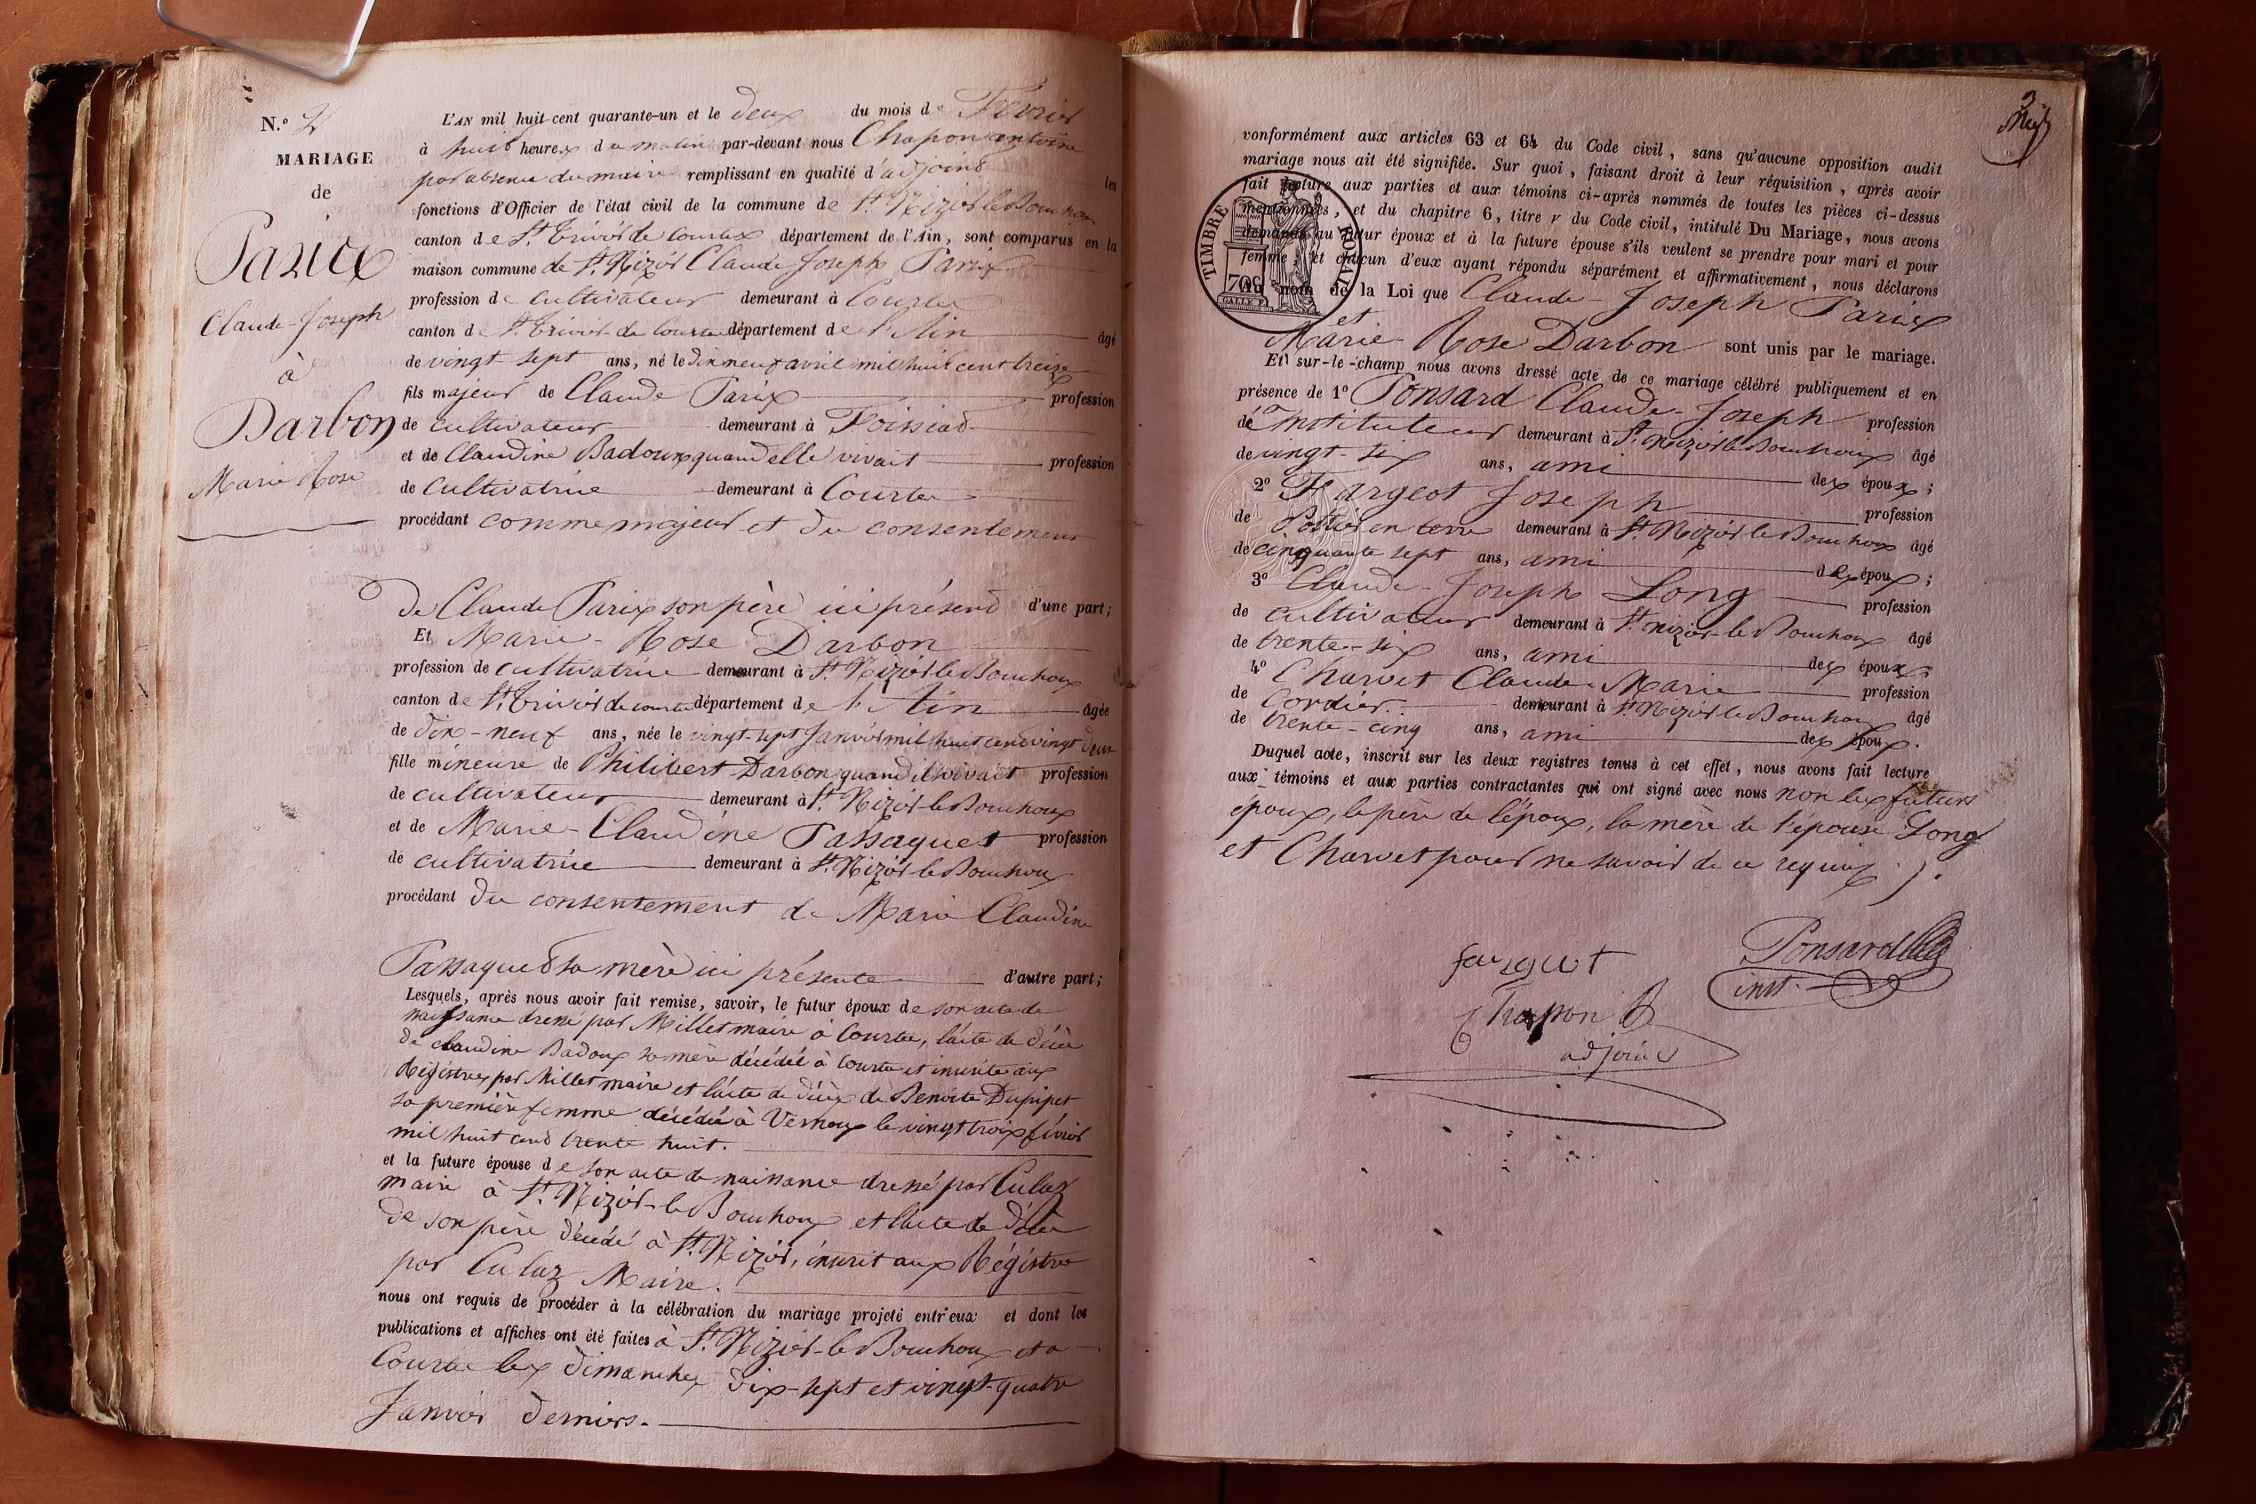 N.° 2
MARIAGE
de
Parix
Claude-Joseph
à
Darbon
Marie Rose
L'AN mil huit cent quarante-un et le deux du mois de Février
à huit heures du matin par-devant nous Chapon antoine
par absence du maire remplissant en qualité d'adjoint les
fonctions d'Officier de l'état civil de la commune de St. Nizier le Bouchoux
canton de St. Trivier de Courtes département de l'Ain, sont comparus en la
maison commune de St. Nizier Claude Joseph Parix
profession de cultivateur demeurant à Courtes
canton de St. Trivier de Courtes département de l'Ain âgé
de vingt sept ans, né le dix neuf avril mil huit cent treize
fils majeur de Claude Parix profession
de cultivateur demeurant à Foissiat
et de Claudine Badoux quand elle vivait profession
de cultivatrice demeurant à Courtes
procédant comme majeur et du consentement
de Claude Parix son père ici présent d'une part;
Et Marie-Rose Darbon
profession de cultivatrice demeurant à St. Nizier le Bouchoux
canton de St. Trivier de courtes département de l'Ain âgée
de dix-neuf ans, née le vingt-sept Janvier mil huit cent vingt deux
fille mineure de Philibert Darbon quand il vivait profession
de cultivateur demeurant à St. Nizier-le Bouchoux
et de Marie-Claudine Passaquet profession
de cultivatrice demeurant à St. Nizier-le Bouchoux
procédant du consentement de Marie Claudine
Passaquet sa mère ici présente d'autre part;
Lesquels, après nous avoir fait remise, savoir, le futur époux de son acte de
naissance dressé par Millet maire à Courtes, l'acte de décès
de claudine Badoux sa mère décédée à Courtes et inscrite aux
Régistres par Millet maire et l'acte de décès de Benoite Dupipet
sa première femme décédée à Vernoux le vingt trois février
mil huit cent trente huit.
et la future épouse de son acte de naissance dressé par Culaz
maire à St. Nizier-le Bouchoux et l'acte de décès
de son père décédé à St. Nizier, inscrit aux Régistres
par Culaz Maire.
nous ont requis de procéder à la célébration du mariage projeté entr'eux et dont les
publications et affiches ont été faites à St. Nizier-le Bouchoux et a
Courtes les dimanches dix-sept et vingt-quatre
Janvier derniers.
vonformément aux articles 63 et 64 du Code civil, sans qu'aucune opposition audit
mariage nous ait été signifiée. Sur quoi, faisant droit à leur réquisition, après avoir
fait lecture aux parties et aux témoins ci-après nommés de toutes les pièces ci-dessus
mentionnées, et du chapitre 6, titre v du Code civil, intitulé Du Mariage, nous avons
demandé au futur époux et à la future épouse s'ils veulent se prendre pour mari et pour
femme; et chacun d'eux ayant répondu séparément et affirmativement, nous déclarons
au nom de la Loi que Claude-Joseph Parix
et
Marie Rose Darbon sont unis par le mariage.
Et sur-le-champ nous avons dressé acte de ce mariage célébré publiquement et en
présence de 1° Ponsard Claude-Joseph profession
de Instituteur demeurant à St. Nizier le Bouchoux âgé
de vingt-six ans, ami des époux;
2° Fargeot Joseph profession
de Potier en terre demeurant à St. Nizier le Bouchoux âgé
de cinquante sept ans, ami des époux;
3° Claude-Joseph Long profession
de cultivateur demeurant à St. nizier-le Bouchoux âgé
de trente-six ans, ami des époux;
4° Charvet Claude Marie profession
de Cordier demeurant à St. Nizier le Bouchoux âgé
de trente-cinq ans, ami des époux.
Duquel acte, inscrit sur les deux registres tenus à cet effet, nous avons fait lecture
aux témoins et aux parties contractantes qui ont signé avec nous non les futurs
époux, le père de l'époux, la mère de l'épouse Long
et Charvet pour ne savoir de ce requis.
TIMBRE ROYAL
70C
fargeot
Ponsard
inst.
Chapon
adjoint